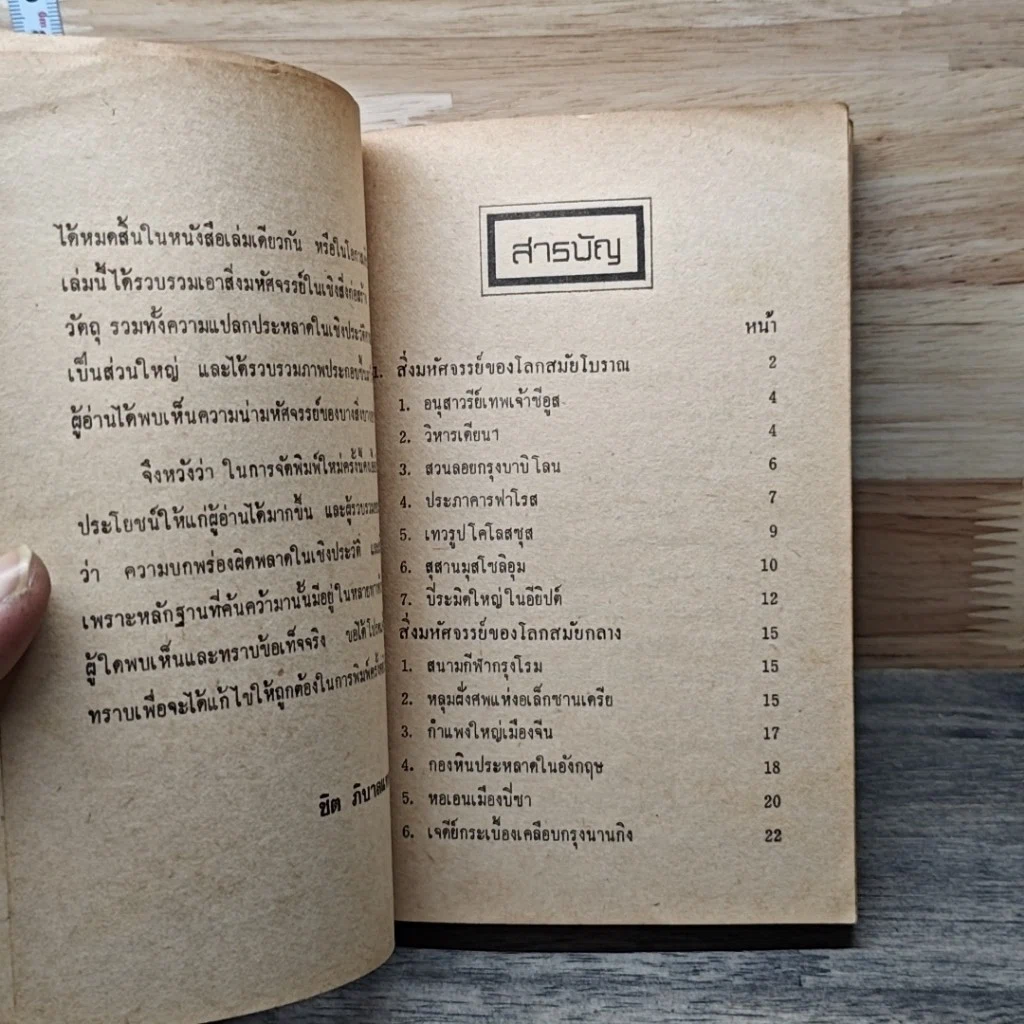 ได้หมดสิ้นในหนังสือเล่มเดียวกัน หรือในโอกาส
เล่มนี้ ได้รวบรวมเอาสิ่งมหัศจรรย์ในเชิงสิ่งก่อสร้าง
วัตถุ รวมทั้งความแปลกประหลาดในเชิงประวัติ
เป็นส่วนใหญ่ และได้รวบรวมภาพประกอบ
ผู้อ่านได้พบเห็นความน่ามหัศจรรย์ของบางสิ่งบาง
จึงหวังว่า ในการจัดพิมพ์ใหม่ครั้งนี้
ประโยชน์ให้แก่ผู้อ่านได้มากขึ้น และผู้รวบรวม
ว่า ความบกพร่องผิดพลาดในเชิงประวัติ
เพราะหลักฐานที่ค้นคว้ามานั้นมีอยู่ในหลาย
ผู้ใดพบเห็นและทราบข้อเท็จจริง ขอได้โปรด
ทราบเพื่อจะได้แก้ไขให้ถูกต้องในการพิมพ์ครั้ง
ชิต ภิบาลแทน
สารบัญ
หน้า
1. สิ่งมหัศจรรย์ของโลกสมัยโบราณ 2
1. อนุสาวรีย์เทพเจ้าซีอูส 4
2. วิหารเดียนา 4
3. สวนลอยกรุงบาบิโลน 6
4. ประภาคารฟาโรส 7
5. เทวรูปโคโลสซุส 9
6. สุสานมุสโซลิอุม 10
7. ปิระมิดใหญ่ในอียิปต์ 12
สิ่งมหัศจรรย์ของโลกสมัยกลาง 15
1. สนามกีฬากรุงโรม 15
2. หลุมฝังศพแห่งอเล็กซานเดรีย 15
3. กำแพงใหญ่เมืองจีน 17
4. กองหินประหลาดในอังกฤษ 18
5. หอเอนเมืองปีซา 20
6. เจดีย์กระเบื้องเคลือบกรุงนานกิง 22